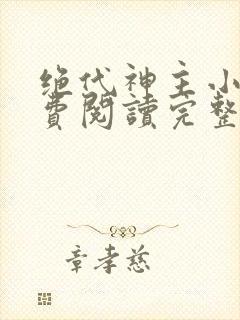 绝代神主小
費閱讀完整
章孝慈